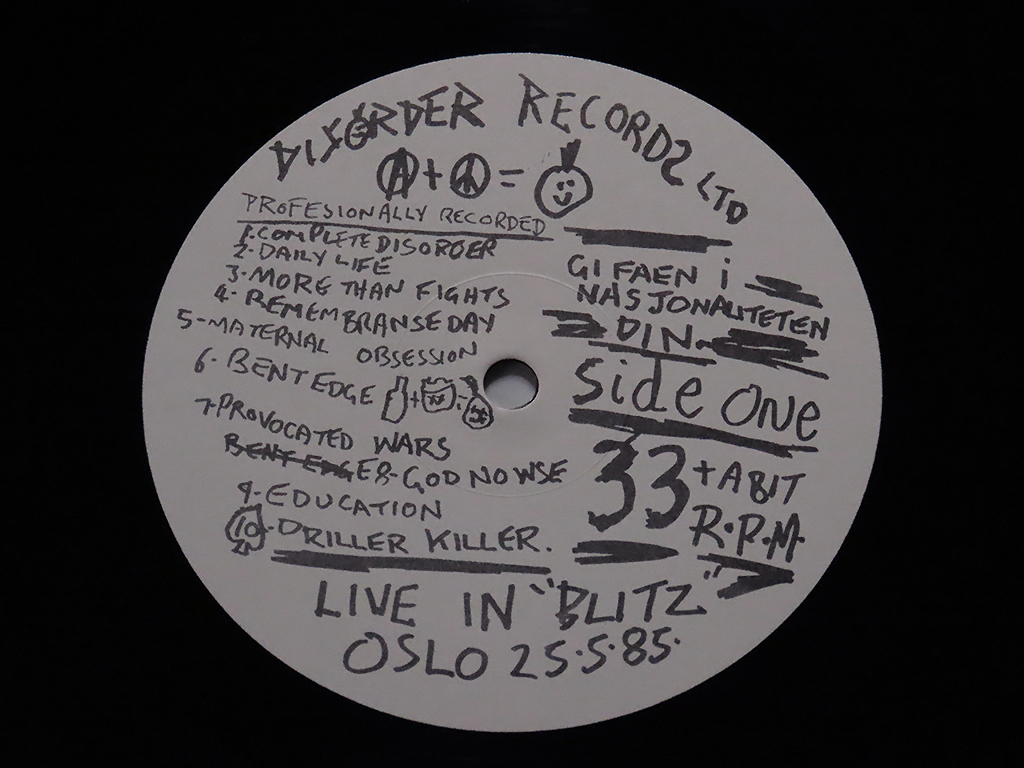 DISORDER RECORDS LTD
A + = 
PROFESIONALLY RECORDED
1. COMPLETE DISORDER
2. DAILY LIFE
3. MORE THAN FIGHTS
4. REMEMBRANSE DAY
5-MATERNAL OBSESSION
6. BENT EDGE + =
7. PROVOCATED WARS
BENT EDGE 8. GOD NOWSE
9. EDUCATION
10. DRILLER KILLER.
GI FAEN i
NASJONALITETEN
DIN.
Side ONE
33 + A BIT
R.P.M.
LIVE IN "BLITZ"
OSLO 25.5.85.